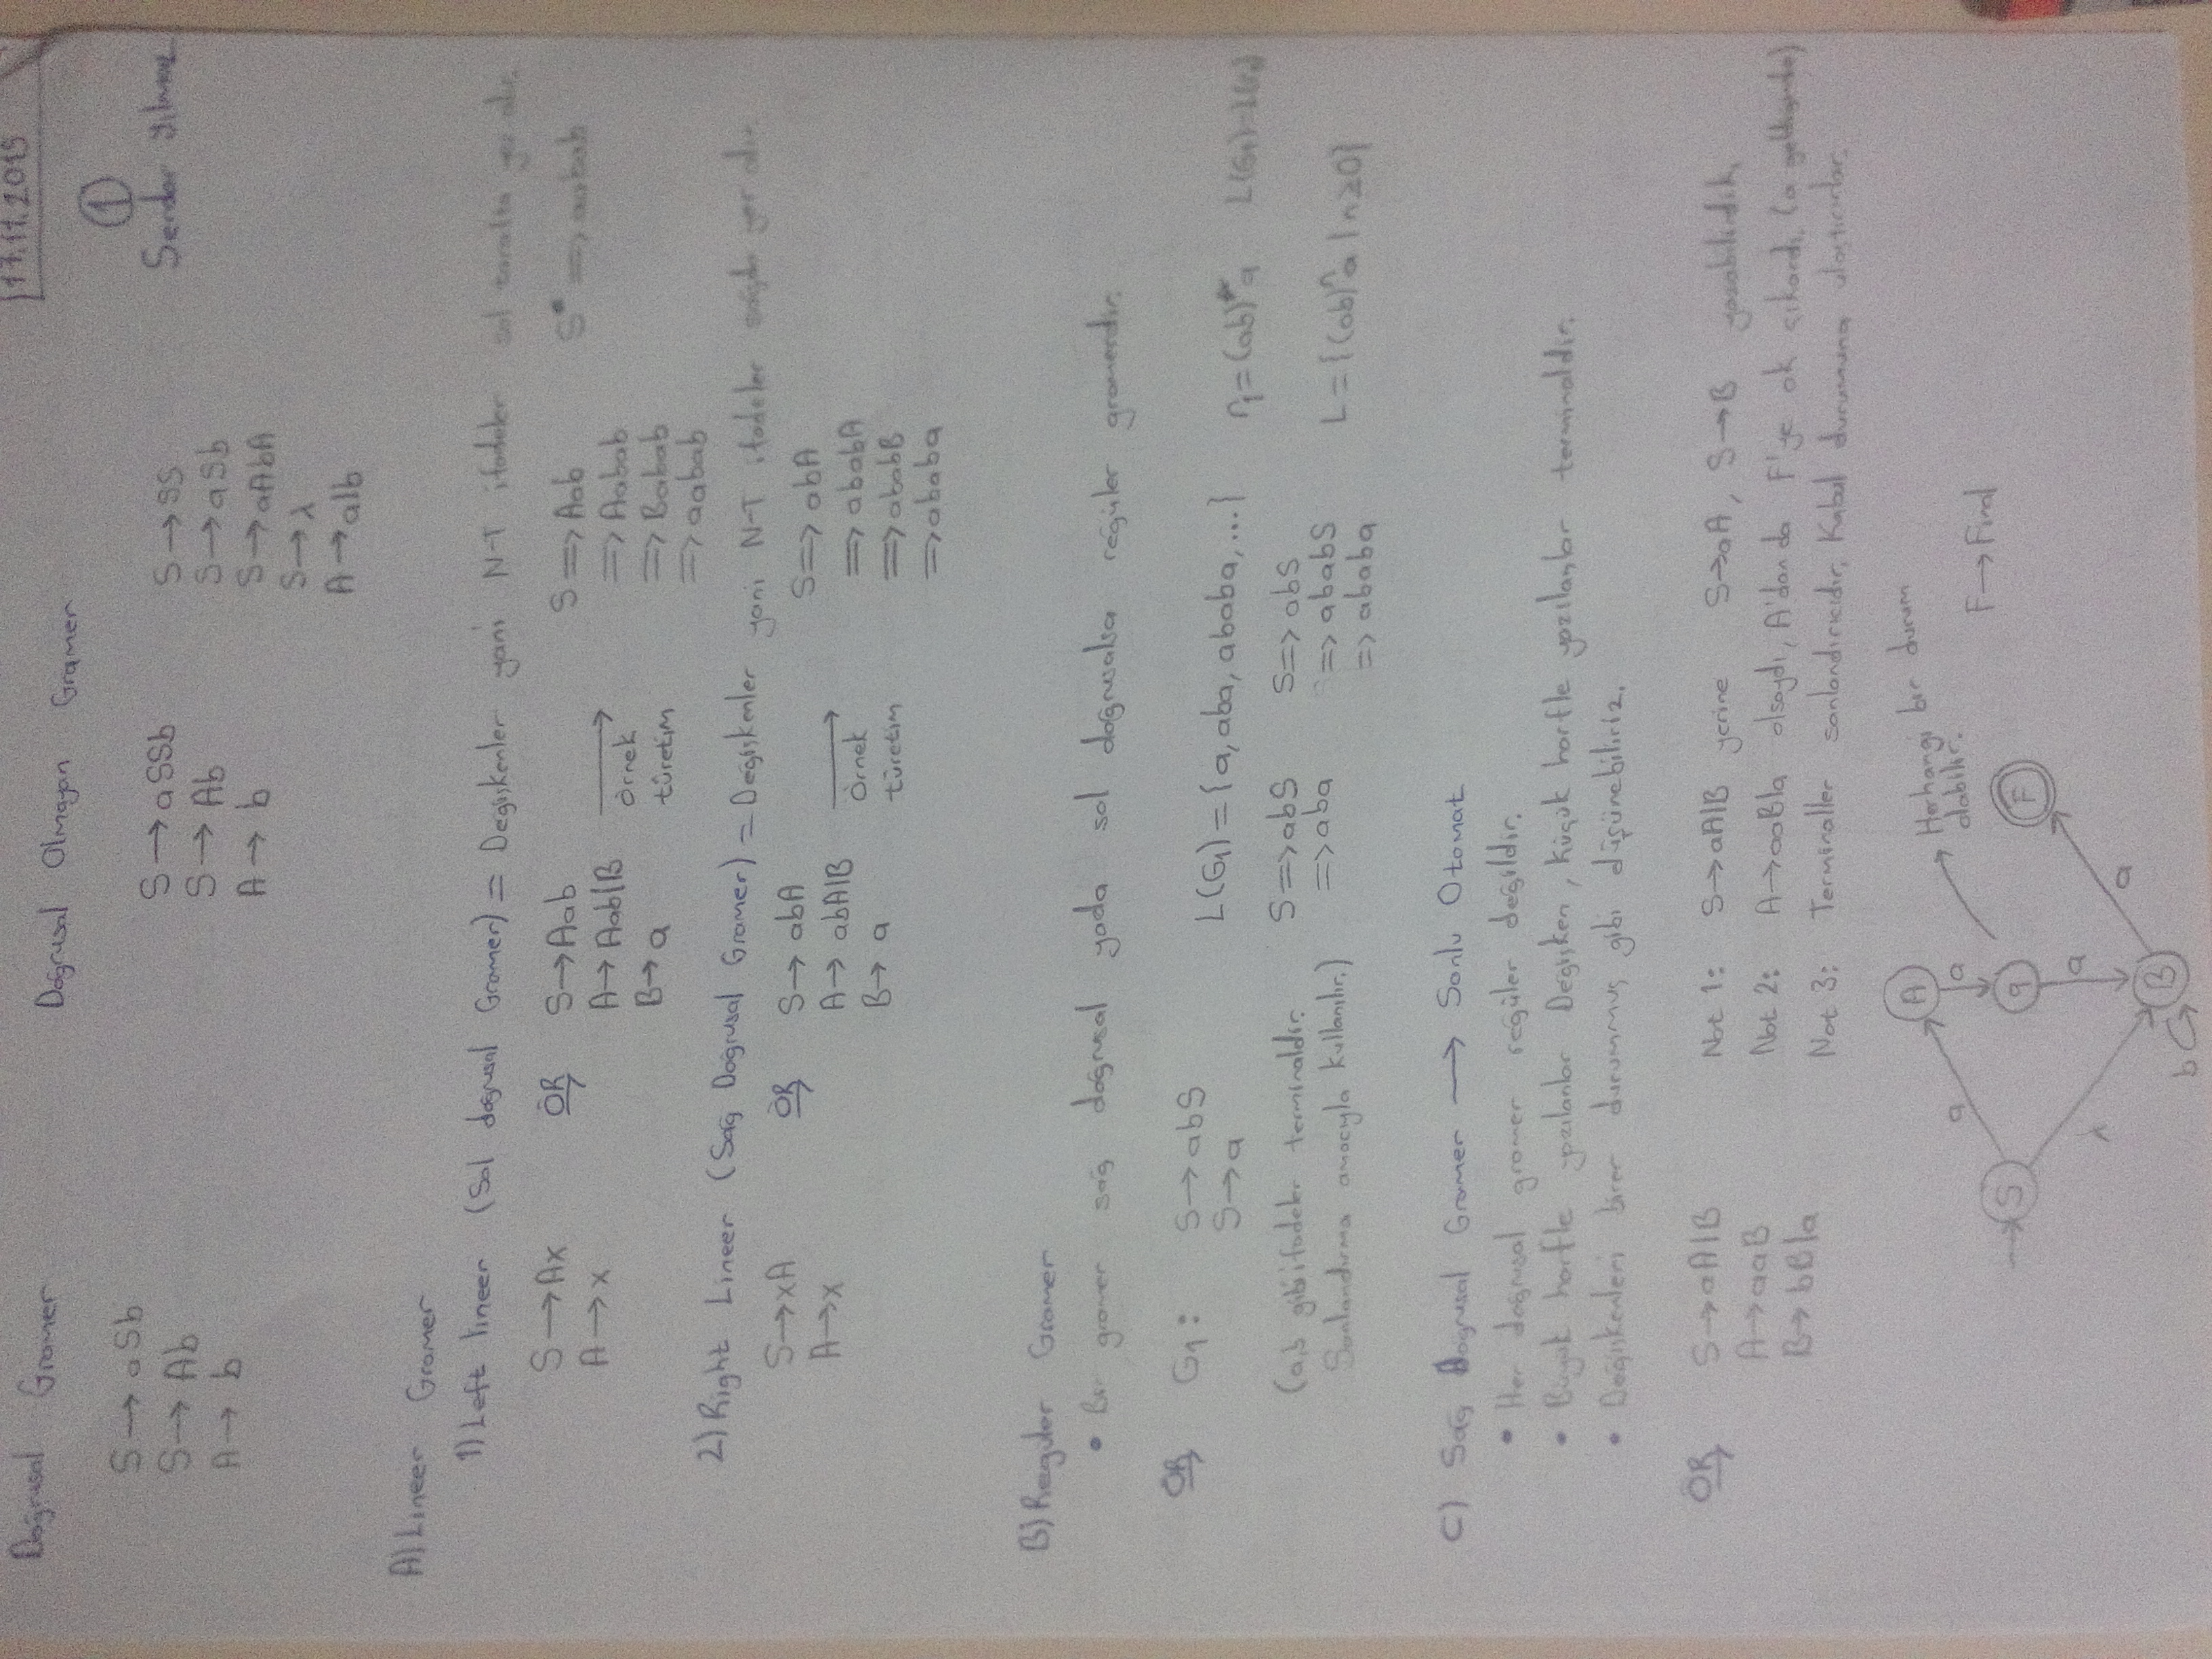 17.11.2015
Doğrusal Gramer
Doğrusal Olmayan Gramer
1
Serdar Yılmaz
S → aSb
S → Ab
A → b
S → aSSb
S → Ab
A → b
S → SS
S → aSb
S → aAbA
S → λ
A → a|b
A) Lineer Gramer
1) Left lineer (Sol doğrusal Gramer) = Değişkenler yani N-T ifadeler sol tarafta yer alır.
S → Ax
A → x
ÖR
S → Aab
A → Aab|B
B → a
örnek
türetim
S => Aab
=> Aabab
=> Babab
=> aabab
S* => aabab
2) Right Lineer (Sağ Doğrusal Gramer) = Değişkenler yani N-T ifadeler sağda yer alır.
S → xA
A → x
ÖR
S → abA
A → abA|B
B → a
örnek
türetim
S => abA
=> ababA
=> ababB
=> ababa
B) Reguler Gramer
• Bir gramer sağ doğrusal yada sol doğrusalsa regüler gramerdir.
ÖR
G1 : S → abS
S → a
L(G1) = {a, aba, ababa, ...}
r1 = (ab)*a L(G1)=L(r1)
(a,b gibi ifadeler terminaldir.
Sonlandırma amacıyla kullanılır.)
S => abS
=> aba
S => abS
=> ababS
=> ababa
L = {(ab)ⁿa | n≥0}
C) Sağ Doğrusal Gramer → Sonlu Otomat
• Her doğrusal gramer regüler değildir.
• Büyük harfle yazılanlar Değişken, küçük harfle yazılanlar terminaldir.
• Değişkenleri birer durummuş gibi düşünebiliriz.
ÖR
S → aA|B
A → aaB
B → bB|a
Not 1: S → aA|B yerine S → aA, S → B yazabilirdik.
Not 2: A → aaB|a olsaydı, A'dan da F'ye ok çıkardı. (a geldiğinde)
Not 3: Terminaller sonlandırıcıdır. Kabul durumuna ulaştırırlar.
A
a
a
Herhangi bir durum
olabilir.
S
q
F
F → Final
λ
a
a
B
b